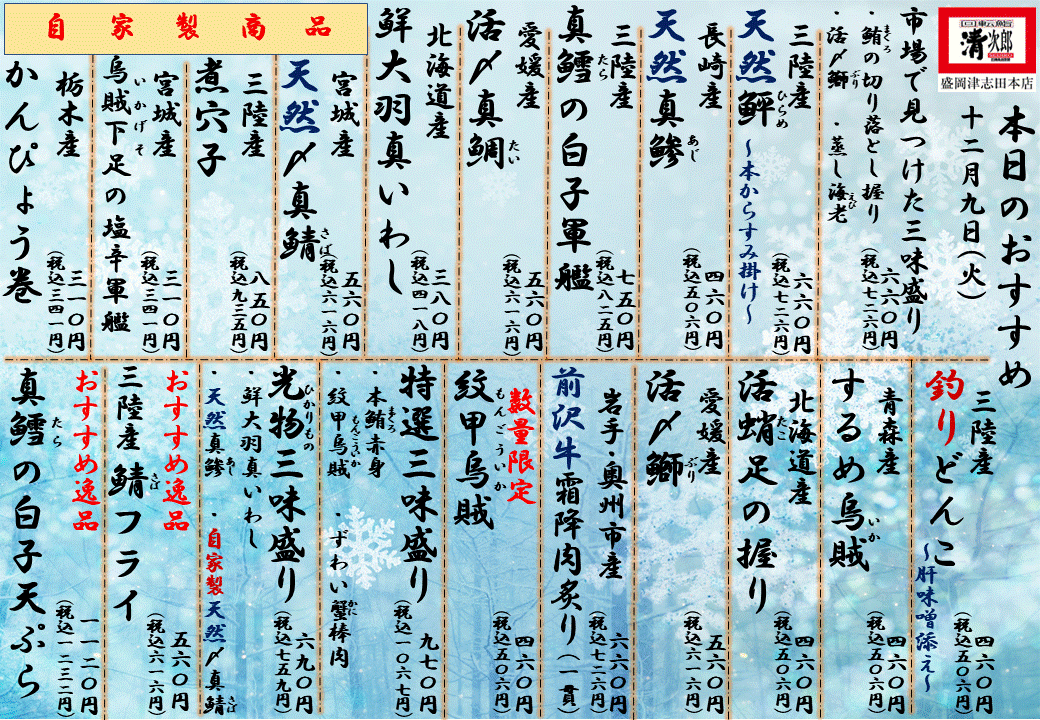 回転鮨
清次郎
盛岡津志田本店
本日のおすすめ
十二月九日(火)
市場で見つけた三味盛り
・鮪の切り落とし握り
まぐろ
・活〆鰤 ・蒸し海老
ぶり
えび
六六〇円
(税込七二六円)
三陸産
天然鮃
ひらめ
～本からすみ掛け～
六六〇円
(税込七二六円)
長崎産
天然真鯵
あじ
四六〇円
(税込五〇六円)
三陸産
真鱈の白子軍艦
たら
七五〇円
(税込八二五円)
愛媛産
活〆真鯛
たい
五六〇円
(税込六一六円)
北海道産
鮮大羽真いわし
三八〇円
(税込四一八円)
自家製商品
宮城産
天然〆真鯖
さば
五六〇円
(税込六一六円)
三陸産
煮穴子
八五〇円
(税込九三五円)
宮城産
烏賊下足の塩辛軍艦
いかげそ
三一〇円
(税込三四一円)
栃木産
かんぴょう巻
三一〇円
(税込三四一円)
三陸産
釣りどんこ
～肝味噌添え～
四六〇円
(税込五〇六円)
青森産
するめ烏賊
いか
四六〇円
(税込五〇六円)
北海道産
活蛸足の握り
たこ
四六〇円
(税込五〇六円)
愛媛産
活〆鰤
ぶり
五六〇円
(税込六一六円)
岩手・奥州市産
前沢牛霜降肉炙り(一貫)
六六〇円
(税込七二六円)
数量限定
紋甲烏賊
もんごういか
四六〇円
(税込五〇六円)
特選三味盛り
・本鮪赤身
まぐろ
・紋甲烏賊 ・ずわい蟹棒肉
もんごういか
かに
九七〇円
(税込一〇六七円)
光物三味盛り
ひかりもの
・鮮大羽真いわし
・天然真鯵 ・自家製天然〆真鯖
あじ
さば
六九〇円
(税込七五九円)
おすすめ逸品
三陸産 鯖フライ
さば
五六〇円
(税込六一六円)
おすすめ逸品
真鱈の白子天ぷら
たら
一一二〇円
(税込一二三二円)